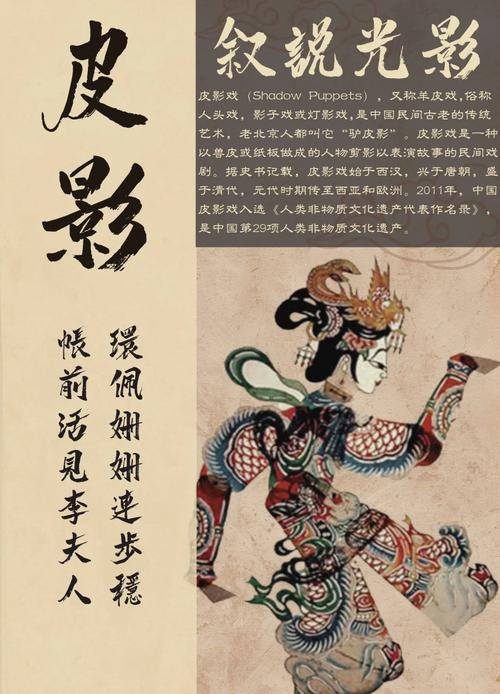 皮影
叙説光影
皮影戏（Shadow Puppets），又称羊皮戏，俗称
人头戏，影子戏或灯影戏，是中国民间古老的传统
艺术，老北京人都叫它“驴皮影”。皮影戏是一种
以兽皮或纸板做成的人物剪影以表演故事的民间戏
剧。据史书记载，皮影戏始于西汉，兴于唐朝，盛
于清代，元代时期传至西亚和欧洲。2011年，中国
皮影戏入选《人类非物质文化遗产代表作名录》，
是中国第29项人类非物质文化遗产。
環佩姍姍連步穩
帳前活見李夫人